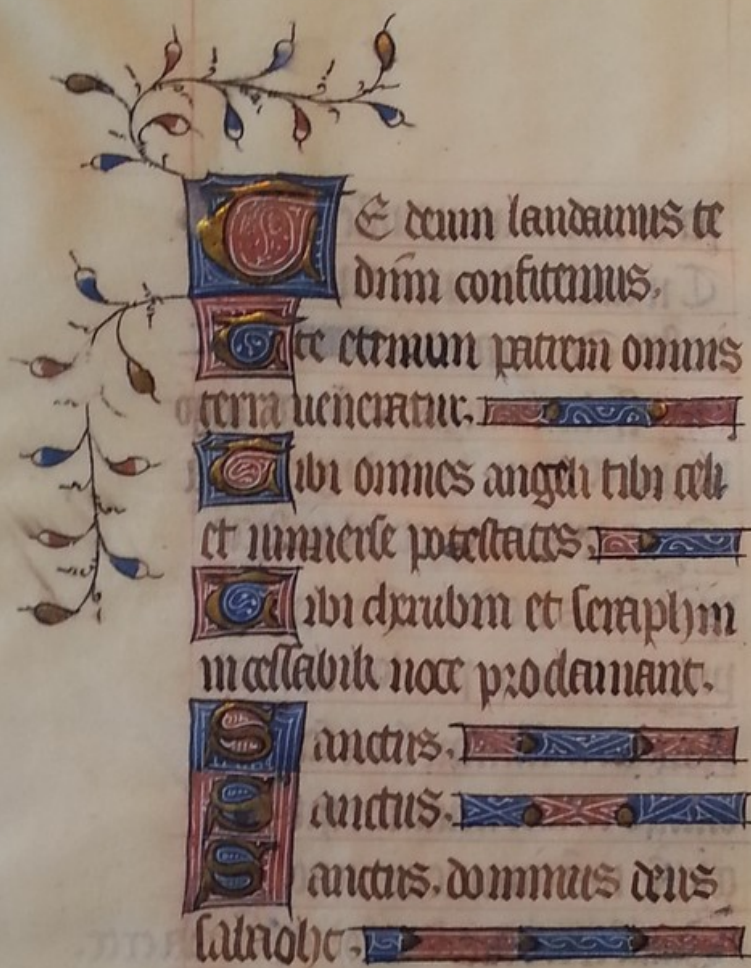 TE deum laudamus te
dn̄m confitemus.
Te eternum patrem omnis
terra ueneratur.
Tibi omnes angeli tibi celi
et uniuerse potestates.
Tibi cherubin et seraphin
incessabili uoce proclamant.
Sanctus.
Sanctus.
Sanctus. dominus deus
sabaoht.